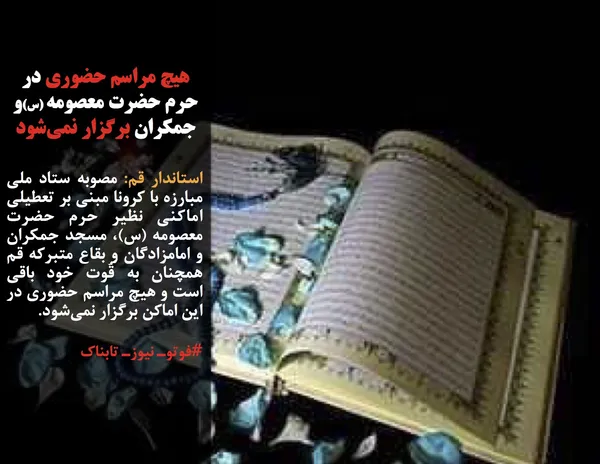 هیچ مراسم حضوری در
حرم حضرت معصومه (س) و
جمکران برگزار نمی‌شود
استاندار قم: مصوبه ستاد ملی
مبارزه با کرونا مبنی بر تعطیلی
اماکنی نظیر حرم حضرت
معصومه (س)، مسجد جمکران
و امامزادگان و بقاع متبرکه قم
همچنان به قوت خود باقی
است و هیچ مراسم حضوری در
این اماکن برگزار نمی‌شود.
#فوتوـ نیوزـ تابناک